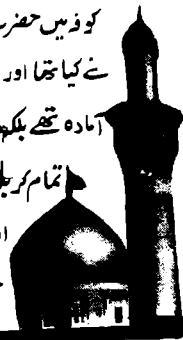 کوفہ میں حضر
نے کیا تھا اور
آمادہ تھے بلکہ
تمام کر بل
ا